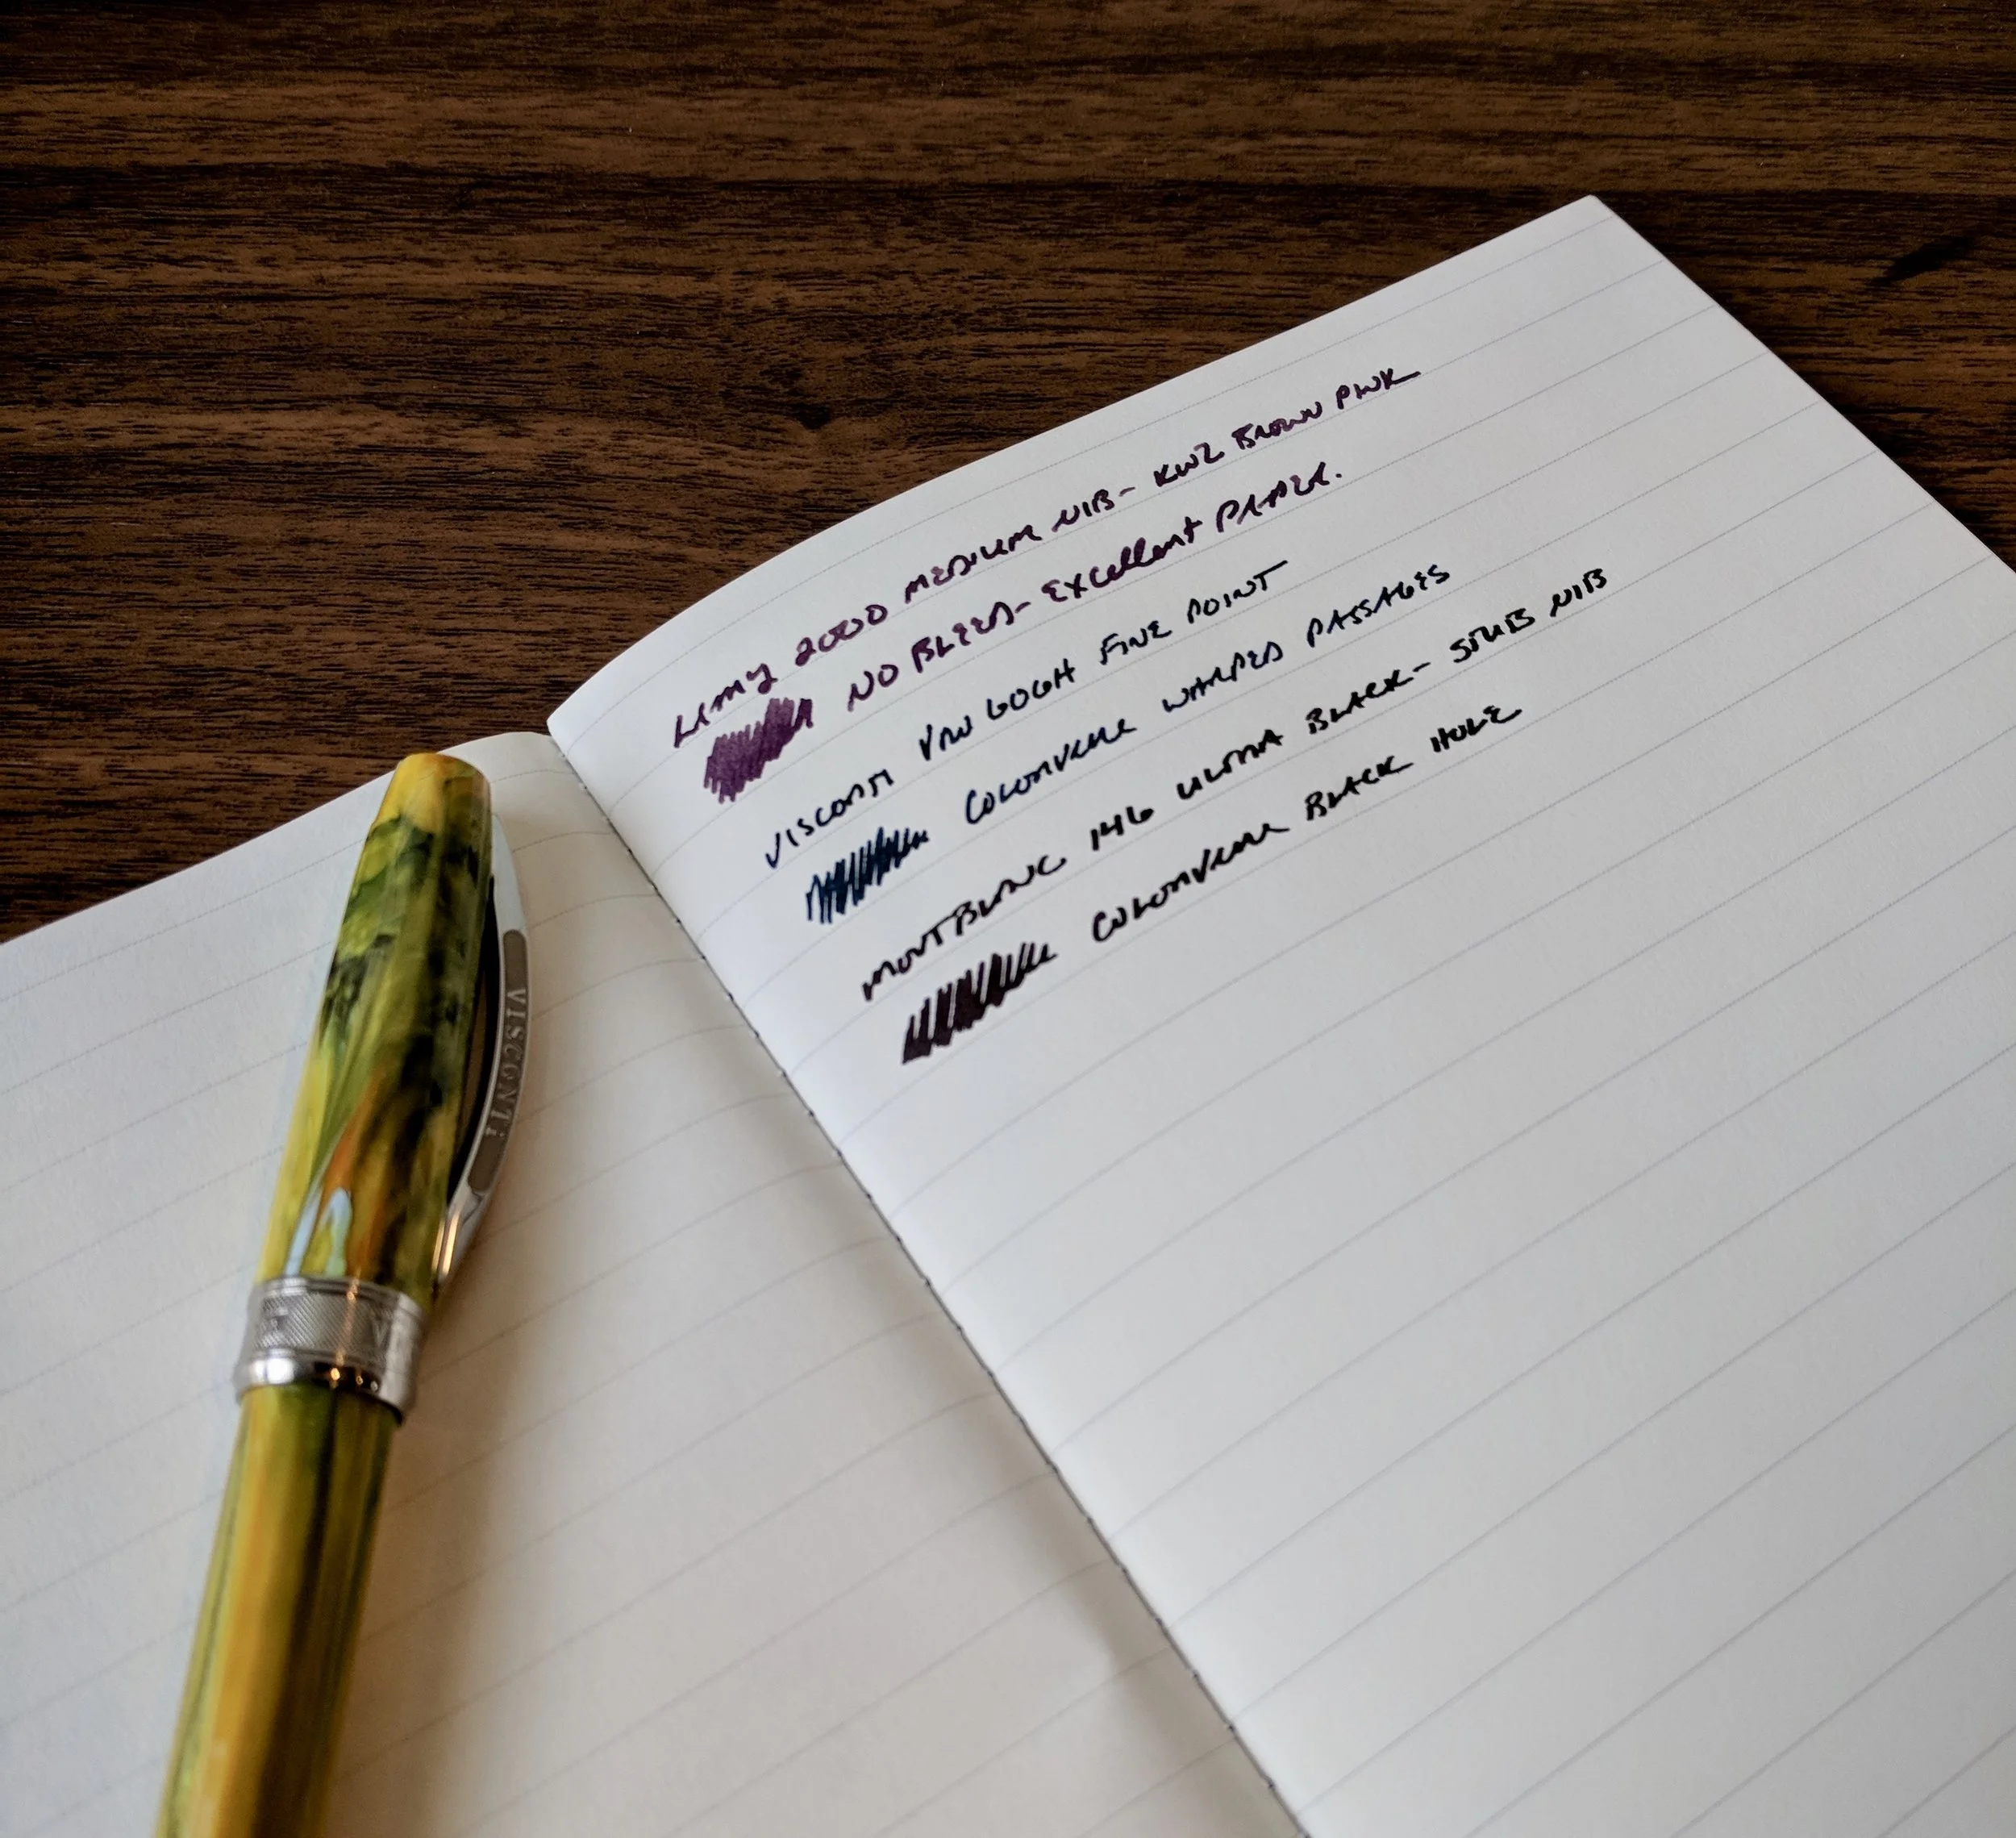 LAMY 2000 MEDIUM NIB- KWZ BROWN PINK
NO BLEED- EXCellent PAPER.
VISCONTI VAN GOGH FINE POINT
COLORVERSE WARPED PASSAGES
MONTBLANC 146 ULTRA BLACK- STUB NIB
COLORVERSE BLACK HOLE
VISCONTI